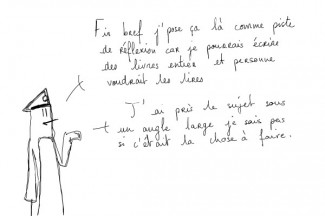 Fin bref j'pose ça là comme piste
de réflexion car je pourrais écrire
des livres entier et personne
voudrait les lires
J'ai pris le sujet sous
un angle large je sais pas
si c'était la chose à faire.